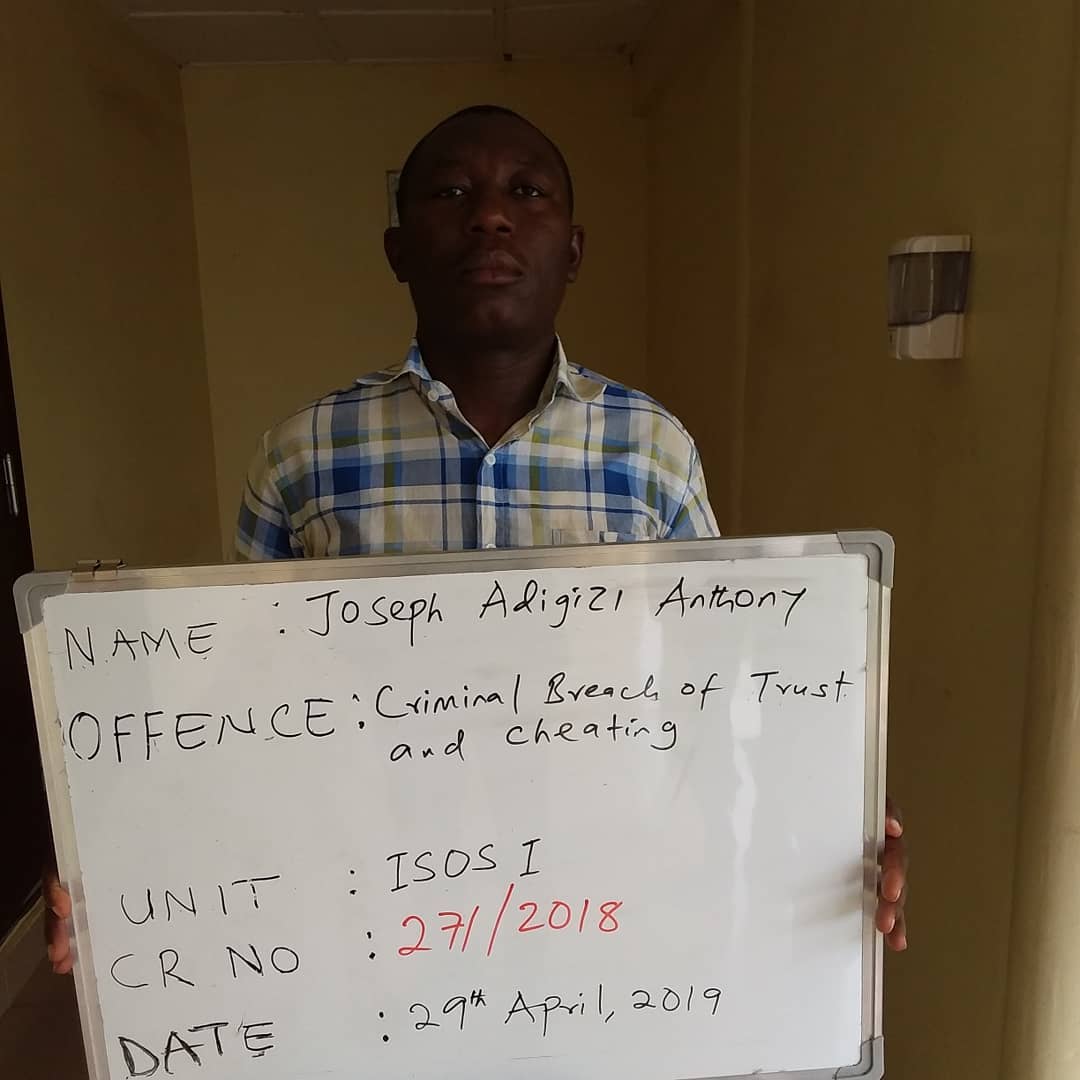 NAME : Joseph Adigizi Anthony
OFFENCE : Criminal Breach of Trust
and cheating
UNIT : ISOS I
CR NO : 271/2018
DATE : 29th April, 2019